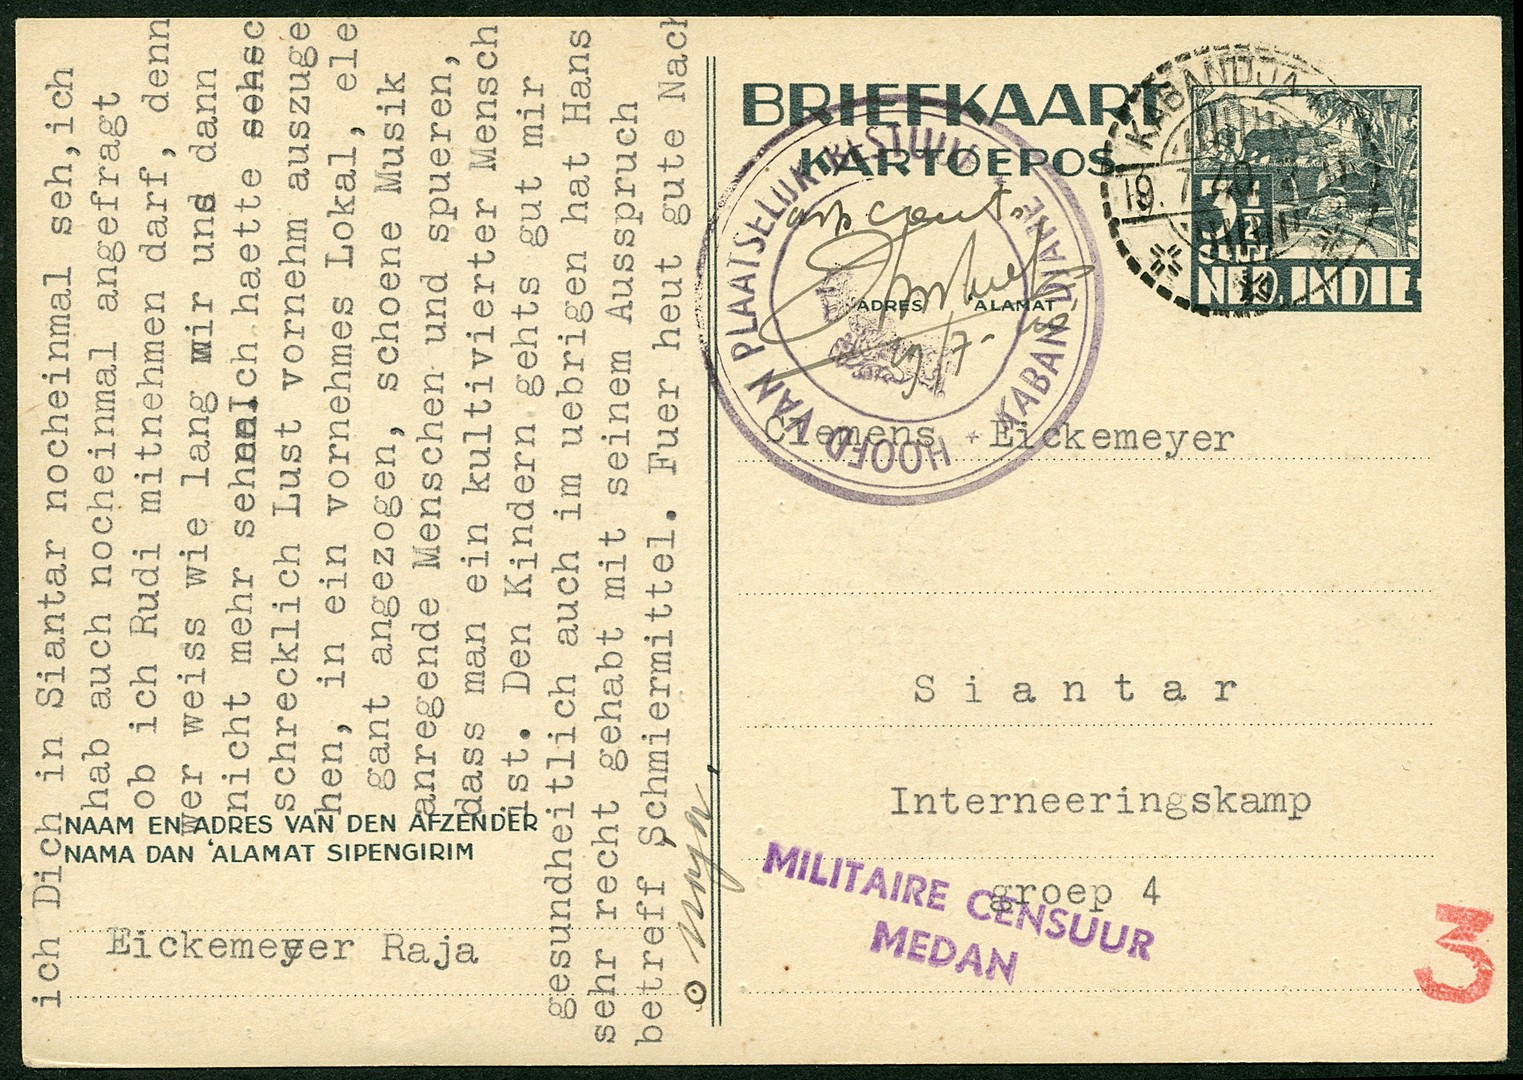 ich Dich in Siantar nocheinmal seh,ich
hab auch nocheinmal angefragt
ob ich Rudi mitnehmen darf, denn
wer weiss wie lang wir uns dann
nicht mehr sehen. Ich haette
schrecklich Lust vornehm auszuge
hen, in ein vornehmes Lokal, ele
gant angezogen, schoene Musik
anregende Menschen und spueren,
dass man ein kultivierter Mensch
ist. Den Kindern gehts gut mir
gesundheitlich auch im uebrigen hat Hans
sehr recht gehabt mit seinem Ausspruch
betreff Schmiermittel. Fuer heut gute Nach
NAAM EN ADRES VAN DEN AFZENDER
NAMA DAN 'ALAMAT SIPENGIRIM
Eickemeyer Raja
BRIEFKAART
KARTOEPOS
KABANDJA
19. 7. 40
3½
CENT
NED. INDIE
HOOFD VAN PLAATSELIJK BESTUUR
KABANDJAHE
19/7-
ADRES ALAMAT
Clemens Eickemeyer
Siantar
Interneeringskamp
groep 4
MILITAIRE CENSUUR
MEDAN
3